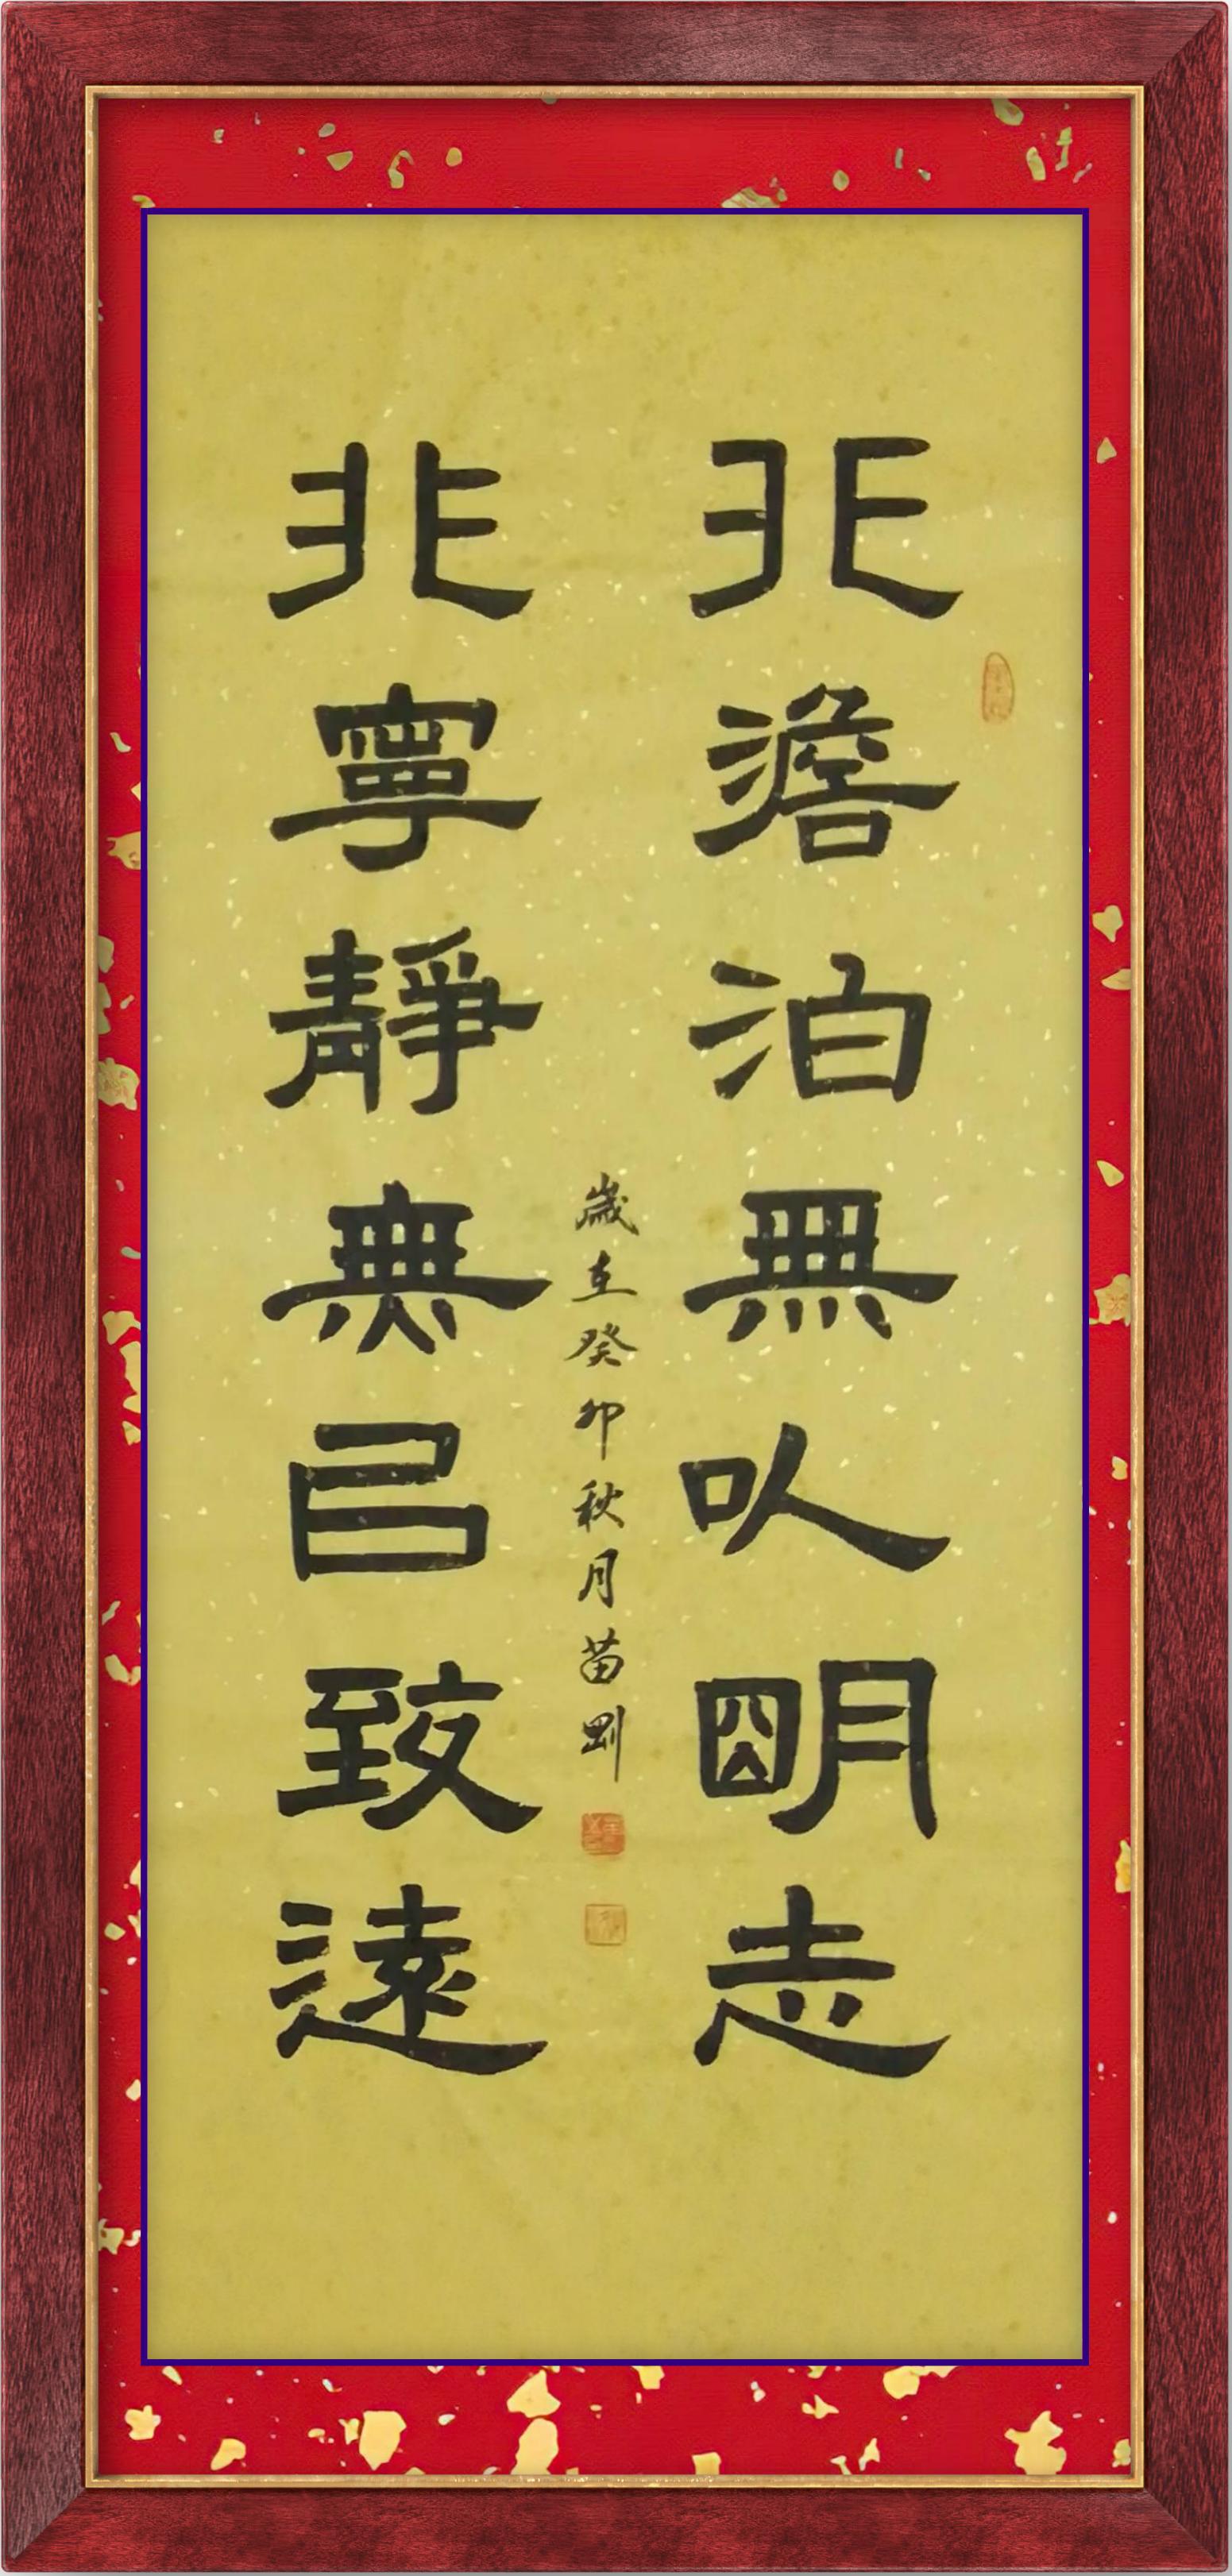 非澹泊無以明志
非寧靜無㠯致遠
歲在癸卯秋月苗剛